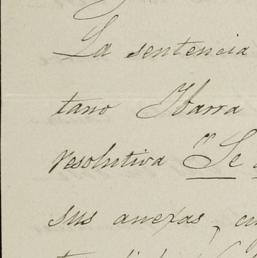 La sentencia
tano Ibarra
resolutiva Se
sus anexas, cu